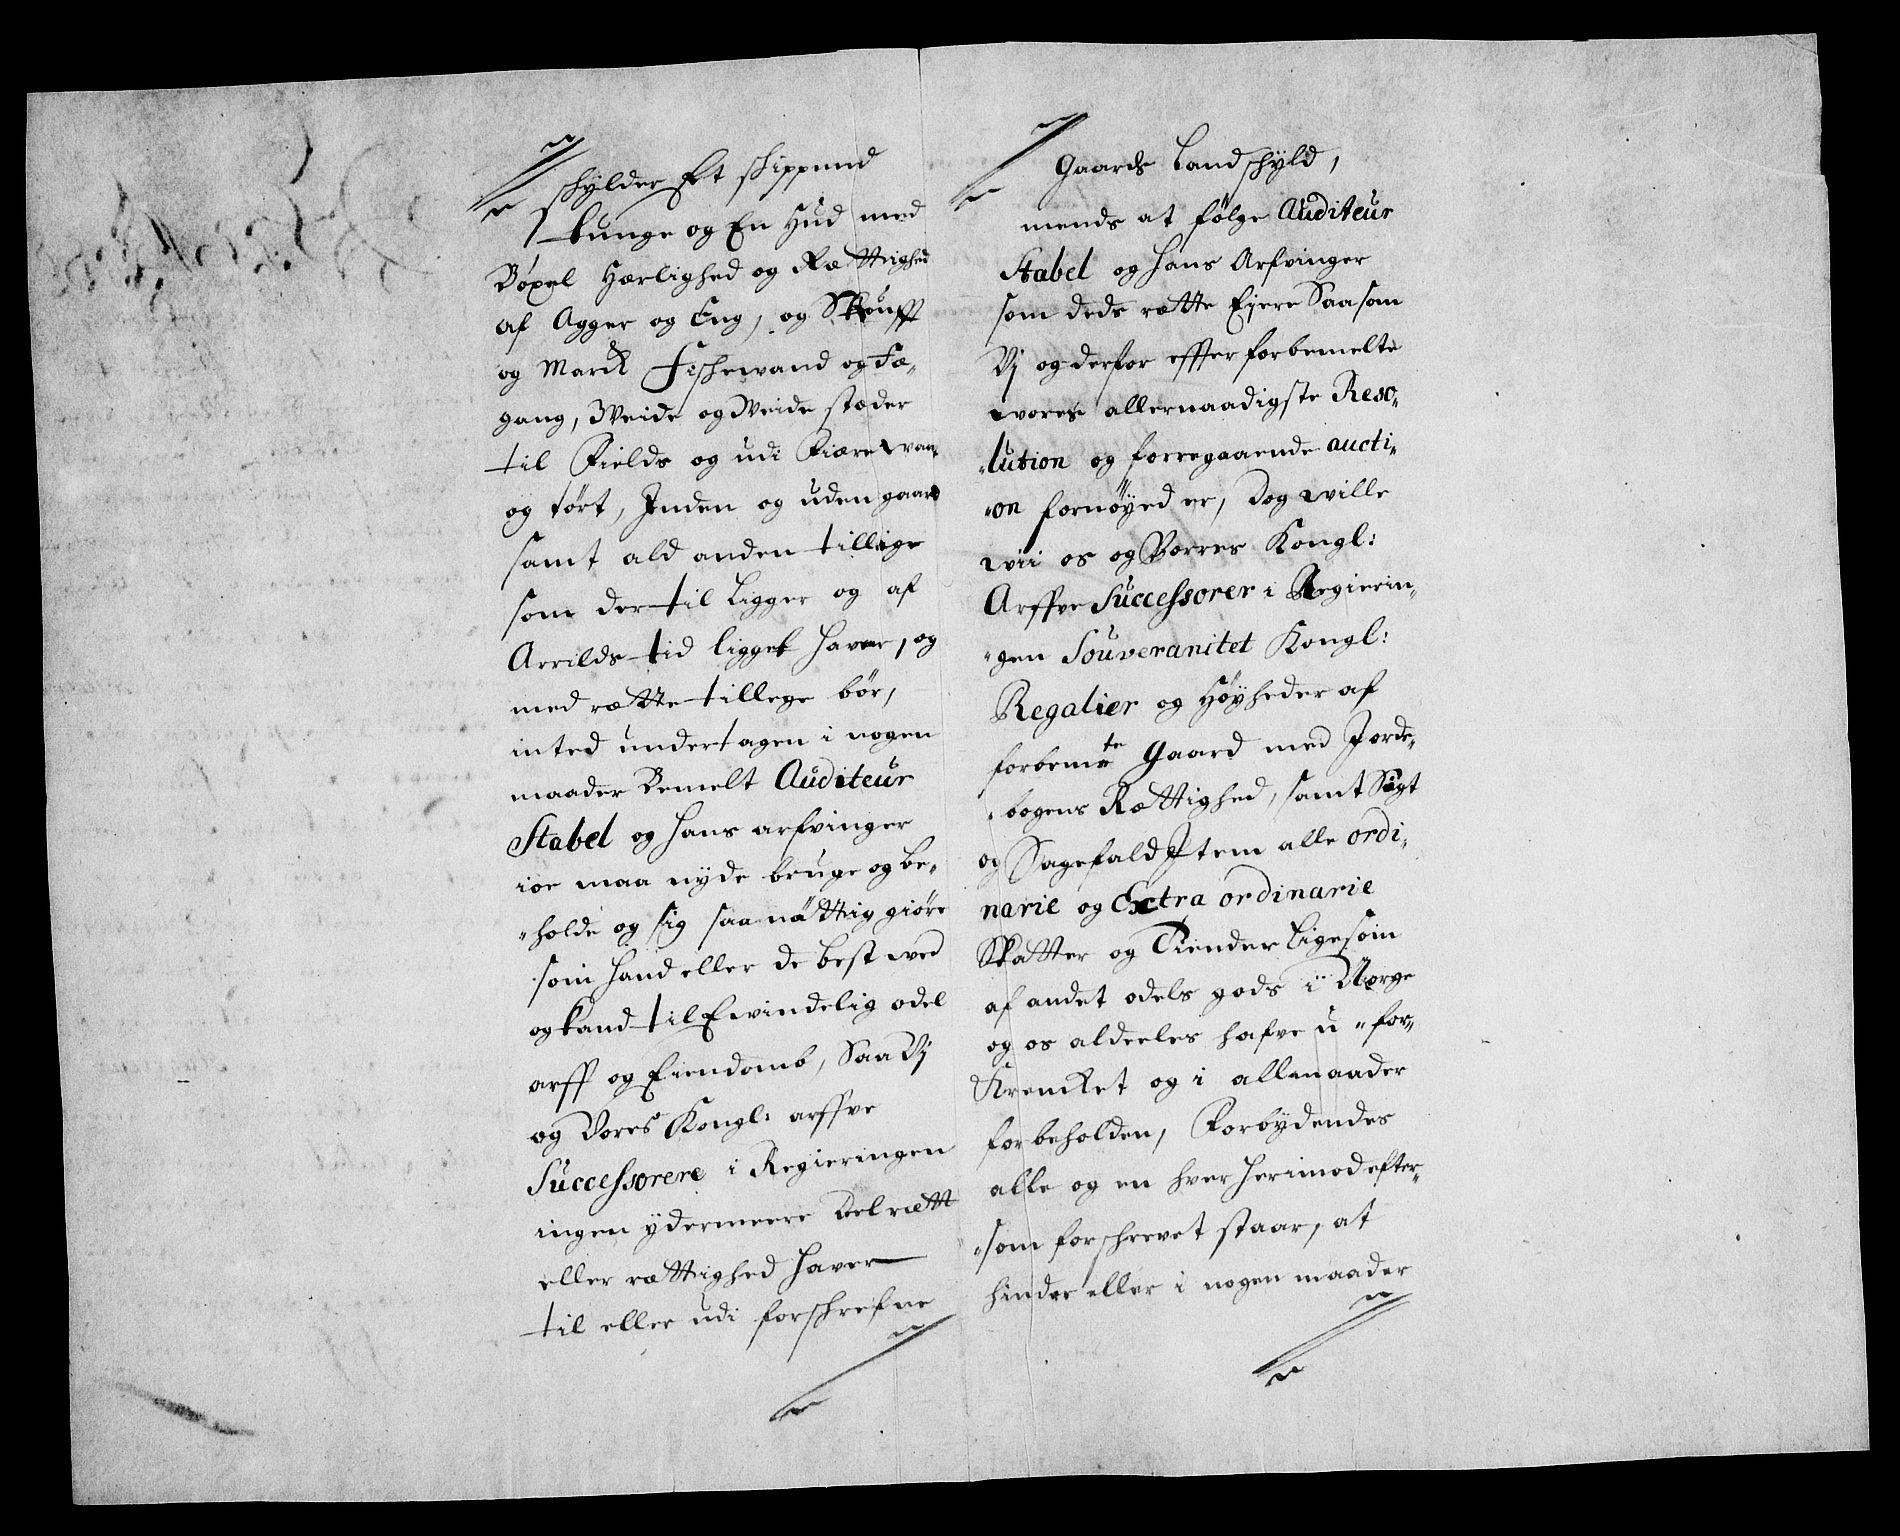 schylder Et schippund
tunge og En Hud med
Böxel Herlighed og Rættighed
af Agger og Eng, og Skouff
og Marck Fischevand og Fæ„
gang, Weide og Weide stæder
til Fields og udi Fiære waat
og tørt, Inden og uden gaard
samt ald anden tillige
som dertil Ligger og af
Arrilds tid ligget haver, og
med rætte tillege bör,
inted undertagen i nogen
maader Bemelt Auditeur
Stabel og Hans arfvinger
ioe maa nyde bruge og be„
„holde og sig saa nøttig giöre
som hand eller de best wed
og kand til Ewindelig odel
arff og Eiendomb, Saa Vj
og Vores Kongl: arffve
Successorere i Regieringen
ingen ydermeere Deel rætt
eller rættighed haver
til eller udi forschrefne
Gaards Landschyld,
mends at følge Auditeur
Stabel og Hans Arfvinger
som deds rætte Ejere Saasom
Vj og derfor effter forbemelte
wores allernaadigste Reso„
„lution og forregaaende aucti„
„on fornöyed er, Dog wille
wii os og Vorres Kongl:
Arffve Successorer i Regierin„
„gen Souveranitet Kongl:
Regalier og Höyheder af
forbemte Gaard med Jorde„
„bogens Rættighed, samt Sigt
og Sagefald Item alle ordi„
narie og Extra ordinarie
Skatter og Tiender Ligesom
af andet odels gods i Norge
og os aldeeles hafve u„for„
Krencket og i alle maader
forbeholden, Forbydendes
alle og en hver herimod efter„
„som forschrevet staar, at
hinder eller i nogen maader